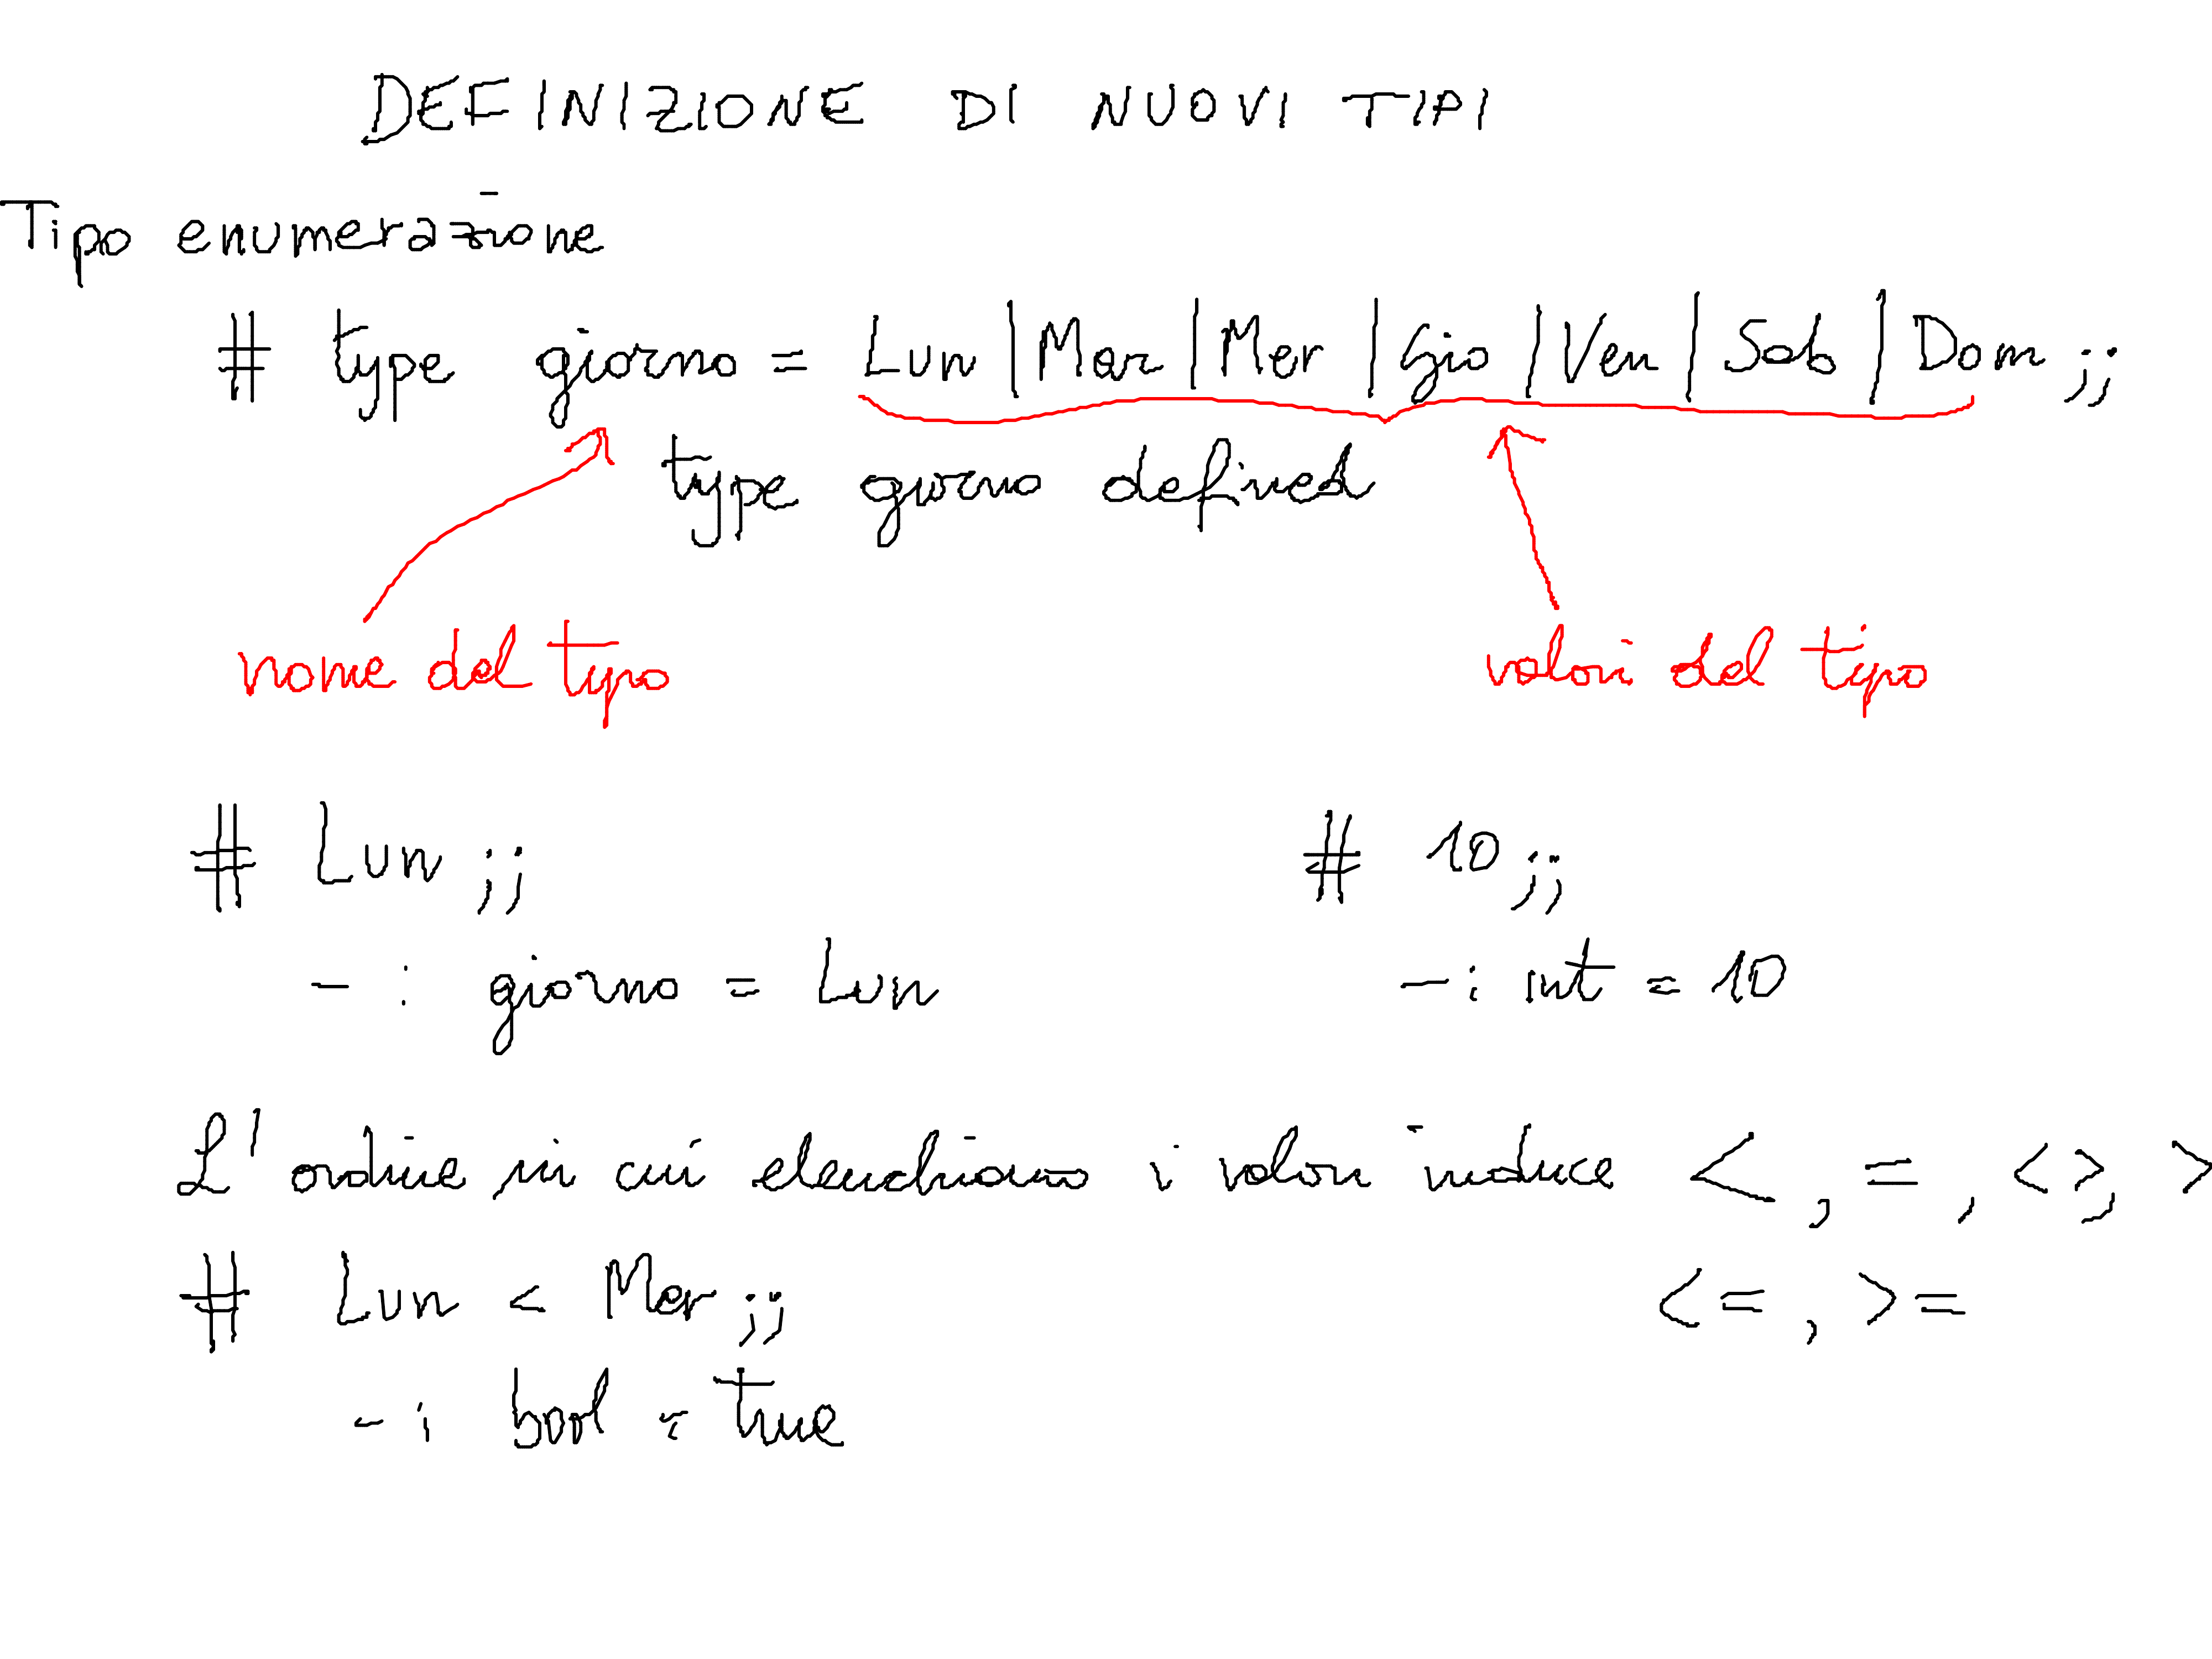 DEFINIZIONE DI NUOVI TIPI
Tipo enumerazione
# type giorno = Lun | Mar | Mer | Gio | Ven | Sab | Dom ;;
type giorno defined
nome del tipo
valori del tipo
# Lun ;;
# 10 ;;
- : giorno = Lun
- : int = 10
L'ordine in cui elenchiamo i valori induce < , = , <>, >
# Lun < Mer ;;
<= , >=
- : bool = true